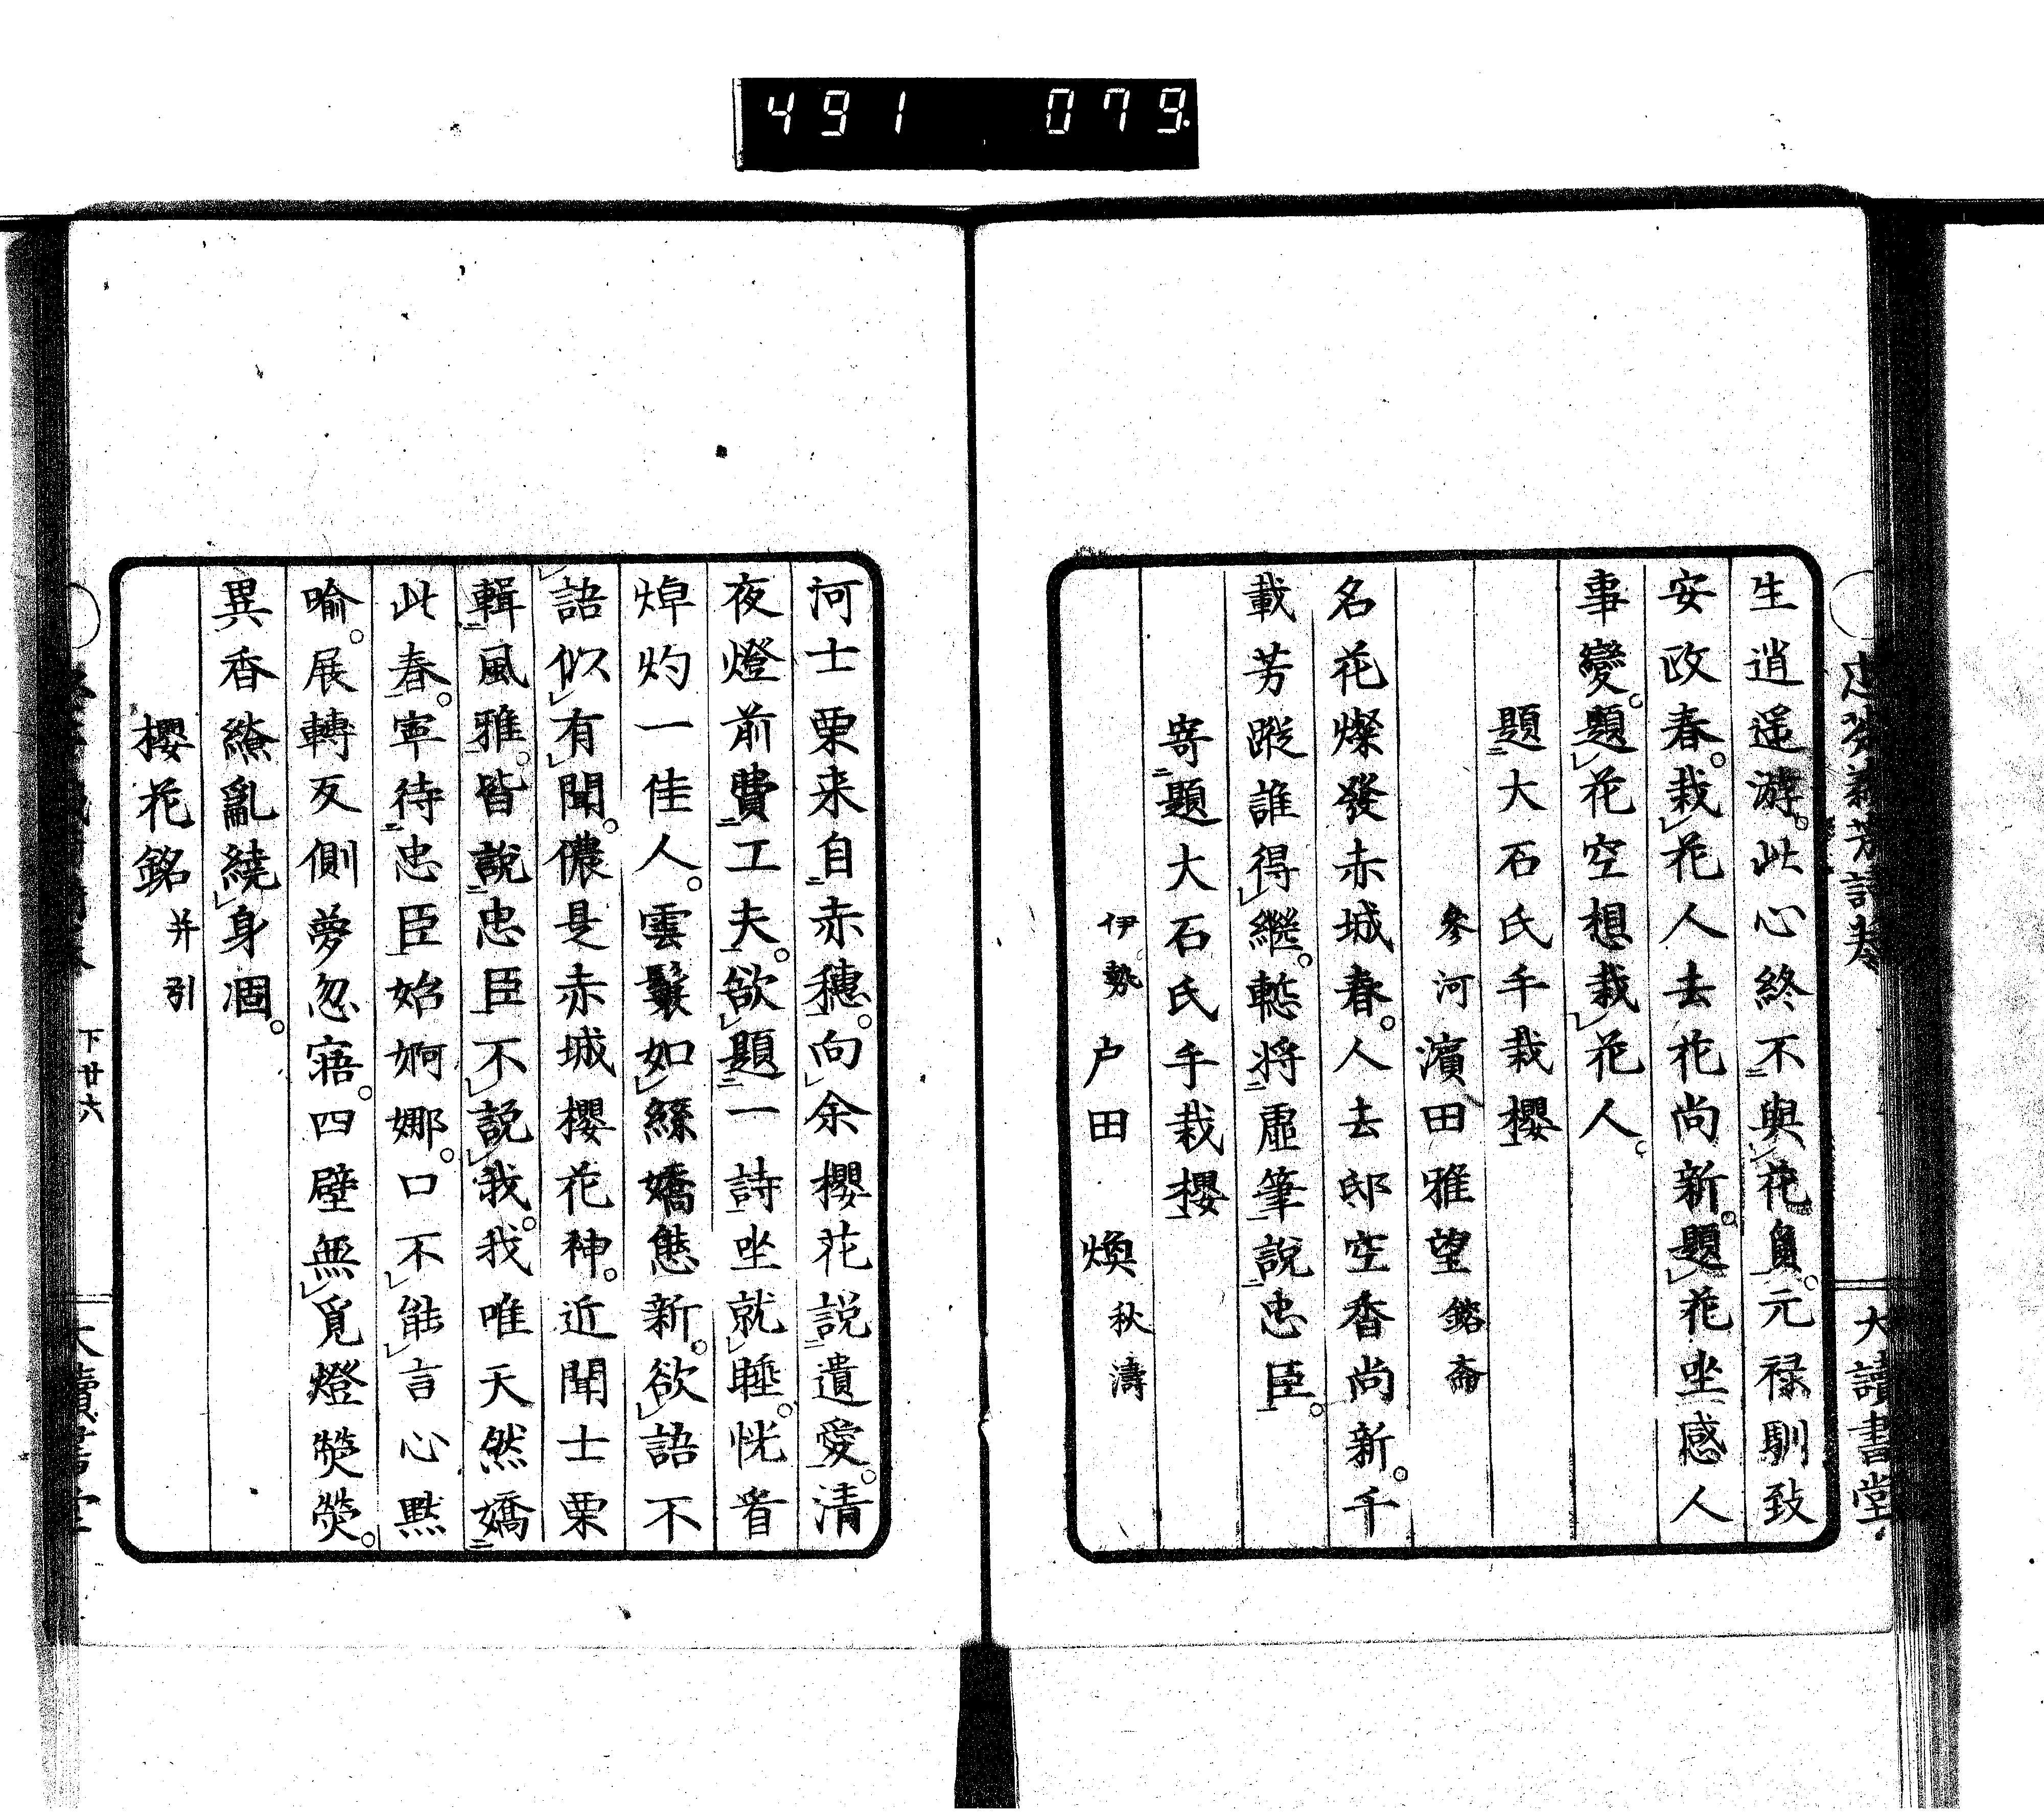 491 079
生逍遥游此心終不與花負元禄馴致
安政春栽花人去花尚新題花坐感人
事變題花空想栽花人
題大石氏手栽櫻
參河 濱田雅望
名花燦發赤城春人去邸空香尚新千
載芳蹤誰得繼慙將虛筆說忠臣
寄題大石氏手栽櫻
伊勢 戸田 煥 秋濤
大讀書堂
河士栗来自赤穗向余櫻花説遺愛清
夜燈前費工夫欲題一詩坐就睡恍看
焯灼一佳人雲鬟如緜嬌態新欲語不
語似有聞儂是赤城櫻花神近聞士栗
輯風雅皆説忠臣不説我我唯天然嬌
此春寧待忠臣始婀娜口不能言心黙
喩展轉反側夢忽寤四壁無覓燈熒熒
異香繚亂繞身凅
櫻花銘 并引
下廿六